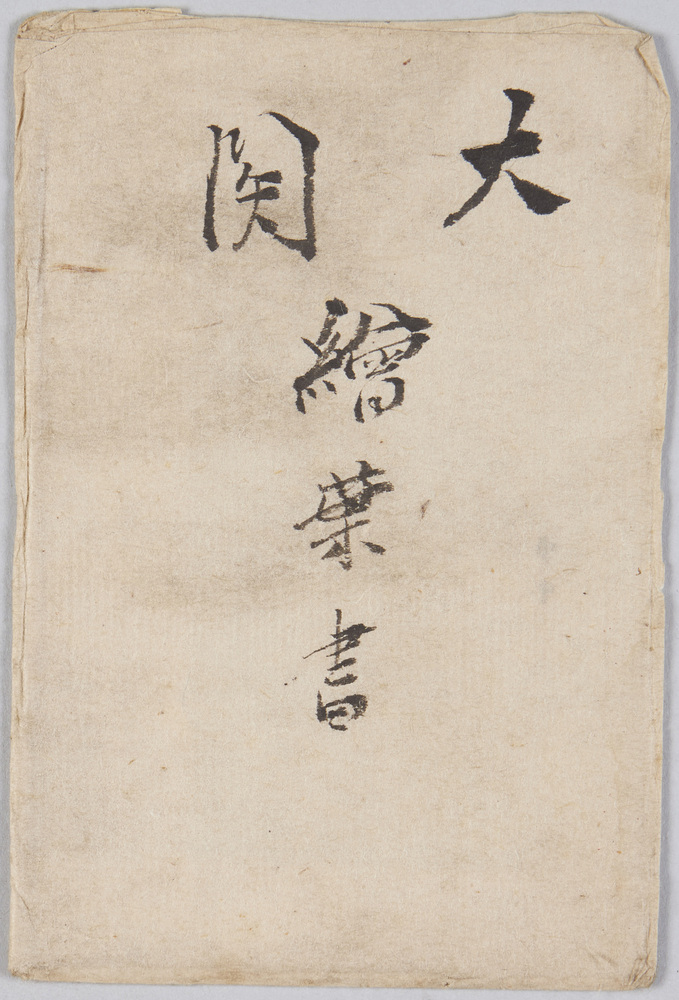 大関
繪葉書